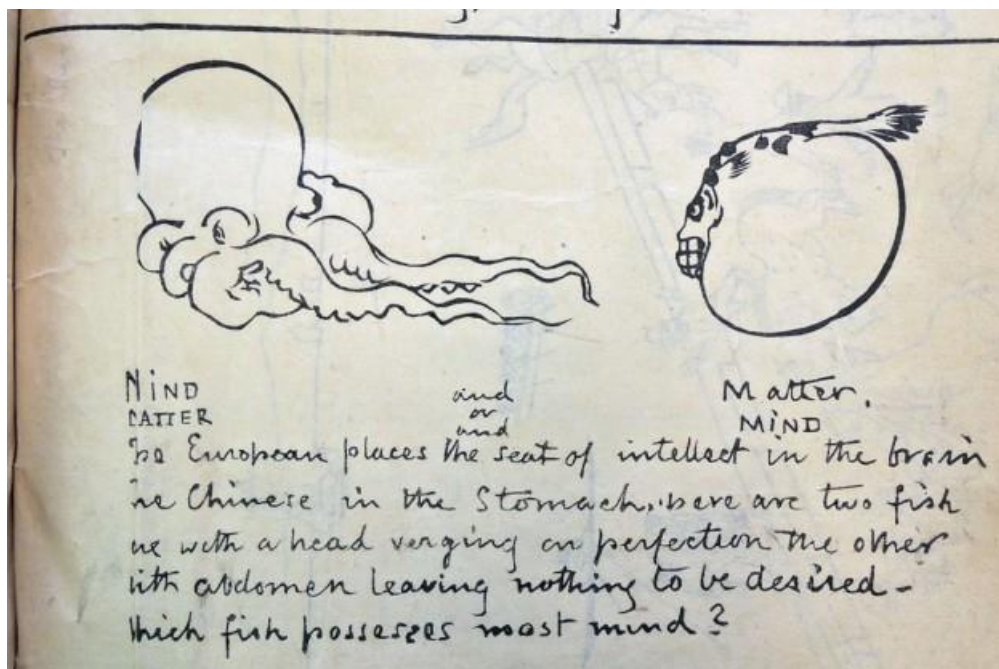 MIND and Matter.
MATTER or and MIND
The European places the seat of intellect in the brain
he Chinese in the Stomach, here are two fish
ne with a head verging on perfection the other
ith abdomen leaving nothing to be desired -
Which fish possesses most mind?